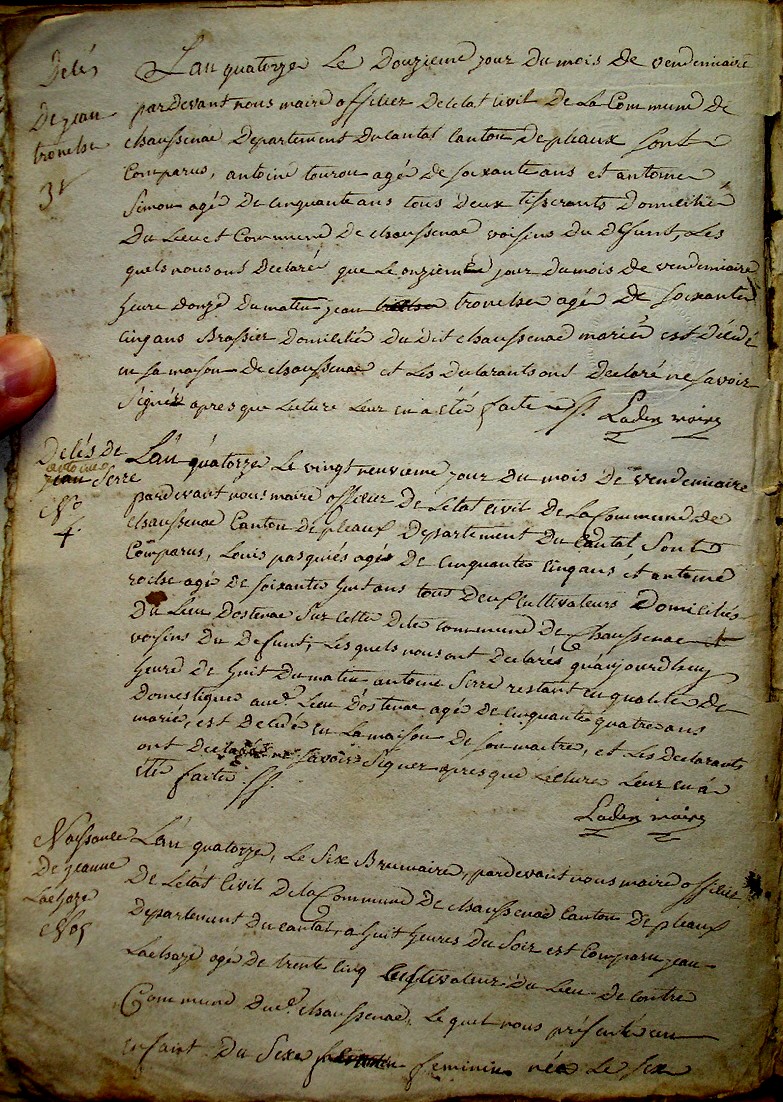 Delés
De jean
tronche
3
L'an quatorze Le Douzieme jour Du mois De vendemiaire
pardevant nous maire officier De letat Civil De La Commune De
chaussenac Departement Ducantal Canton De pleaux Sont
Comparus, antoine tourou agé De soixante ans et antoine
Simon agé De Cinquante ans tous Deux tisserants Domicilies
Du Lieu et Commune De chaussenac voisins Du Defunt, Les
quels nous ont Declaré que Le onzieme jour Du mois De vendemiaire
heure Donze Du matin jean tronche agé De Soixante
Cinq ans Brassier Domicilié Du Dit chaussenac marié est Decedé
en sa maison De chaussenac et Les Declarants ont Declaré ne savoir
Signer apres que Lecture Leur en a eté faite
Laden maire
Delés De
antoine
jean Serre
No
4.
L'an quatorze Le vingt neuvieme jour Du mois De vendemiaire
pardevant nous maire officier De Letat Civil De La Commune De
chaussenac Canton De pleaux Departement Du Cantal, Sont
Comparus, Louis pasquies agé De Cinquante Cinq ans et antoine
roche agé De soixante huit ans tous Deux Cultivateurs Domiciliés
Du Lieu Dostenac Sur Cette Dite Commune De Chaussenac
voisins Du Defunt, Les quels nous ont Declarés qu'aujourdhuy
heure De huit Du matin antoine Serre restant en qualité De
Domestique aud. Lieu Dostenac agé De Cinquante quatre ans
marié, est Decedé en La maison De Son maitre, et Les Declarants
ont Declarés ne savoir Signer apres que Lecture Leur en a
été faite
Laden maire
Naissance
De jeanne
Lachaze
No 5
L'an quatorze, Le Six Brumaire, pardevant nous maire officier
De Létat Civil De la Commune De chaussenac Canton De pleaux
Departement Du Cantal, a huit heures Du Soir est Comparu jean
Lachaze agé De trente Cinq Cultivateur Du Lieu De Contre
Commune Dud. chaussenac, Le quel nous présenté un
enfant Du Sexe feminin née Le Six